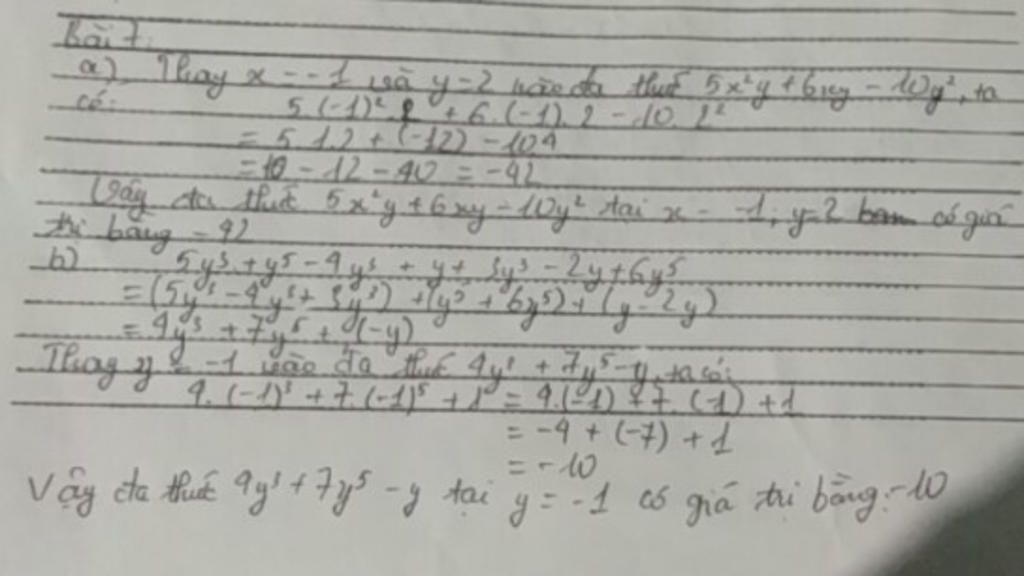 Bài 7.
a) Thay x = -1 và y = 2 vào đa thức 5x²y + 6xy - 10y², ta
có: 5.(-1)².2 + 6.(-1).2 - 10.2²
= 5.1.2 + (-12) - 10.4
= 10 - 12 - 40 = -42
Vậy đa thức 5x²y + 6xy - 10y² tại x = -1; y=2 có giá
trị bằng -42
b) 5y³ + y⁵ - 4y³ + y + 3y³ - 2y + 6y⁵
= (5y³ - 4y³ + 3y³) + (y⁵ + 6y⁵) + (y - 2y)
= 4y³ + 7y⁵ + (-y)
Thay y = -1 vào đa thức 4y³ + 7y⁵ - y, ta có:
4.(-1)³ + 7.(-1)⁵ + 1 = 4.(-1) + 7.(-1) + 1
= -4 + (-7) + 1
= -10
Vậy đa thức 4y³ + 7y⁵ - y tại y = -1 có giá trị bằng: -10